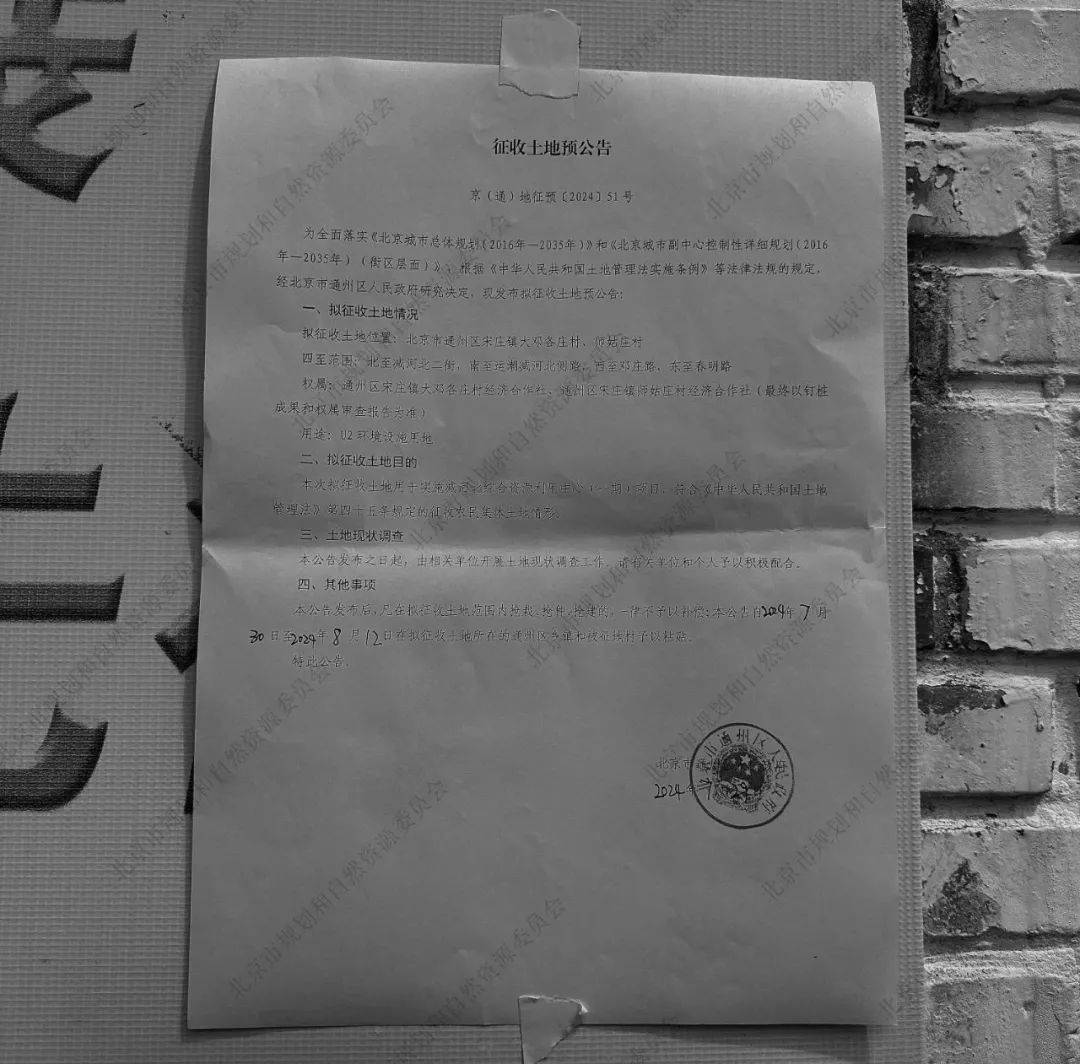 征收土地预公告
京（通）地征预〔2024〕51号
为全面落实《北京城市总体规划（2016年—2035年）》和《北京城市副中心控制性详细规划（2016
年—2035年）（街区层面）》，根据《中华人民共和国土地管理法实施条例》等法律法规的规定，
经北京市通州区人民政府研究决定，现发布拟征收土地预公告：
一、拟征收土地情况
拟征收土地位置：北京市通州区宋庄镇大邓各庄村、师姑庄村
四至范围：北至减河北二街，南至运潮减河北侧路，西至邓庄路，东至春明路
权属：通州区宋庄镇大邓各庄村经济合作社、通州区宋庄镇师姑庄村经济合作社（最终以钉桩
成果和权属审查报告为准）
用途：U2环境设施用地
二、拟征收土地目的
本次拟征收土地用于实施减河北综合资源利用中心（一期）项目，符合《中华人民共和国土地
管理法》第四十五条规定的征收农民集体土地情形。
三、土地现状调查
本公告发布之日起，由相关单位开展土地现状调查工作，请有关单位和个人予以积极配合。
四、其他事项
本公告发布后，凡在拟征收土地范围内抢栽、抢种、抢建的，一律不予以补偿；本公告自2024年7月
30日至2024年8月12日在拟征收土地所在的通州区乡镇和被征地村予以张贴。
特此公告。
北京市
2024
北京市通州区人民政府
北京市规划和自然资源委员会